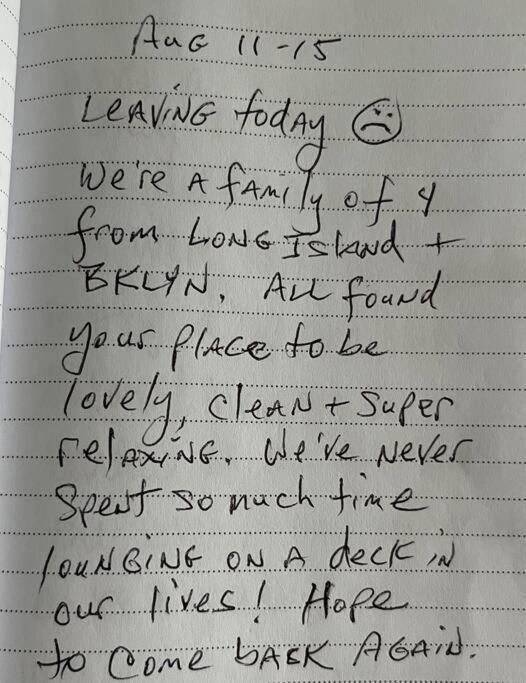 Aug 11-15
Leaving today ☹
We're a family of 4
from Long Island +
BKLYN. All found
your place to be
lovely, clean + super
relaxing. We've never
spent so much time
lounging on a deck in
our lives! Hope
to come back again.